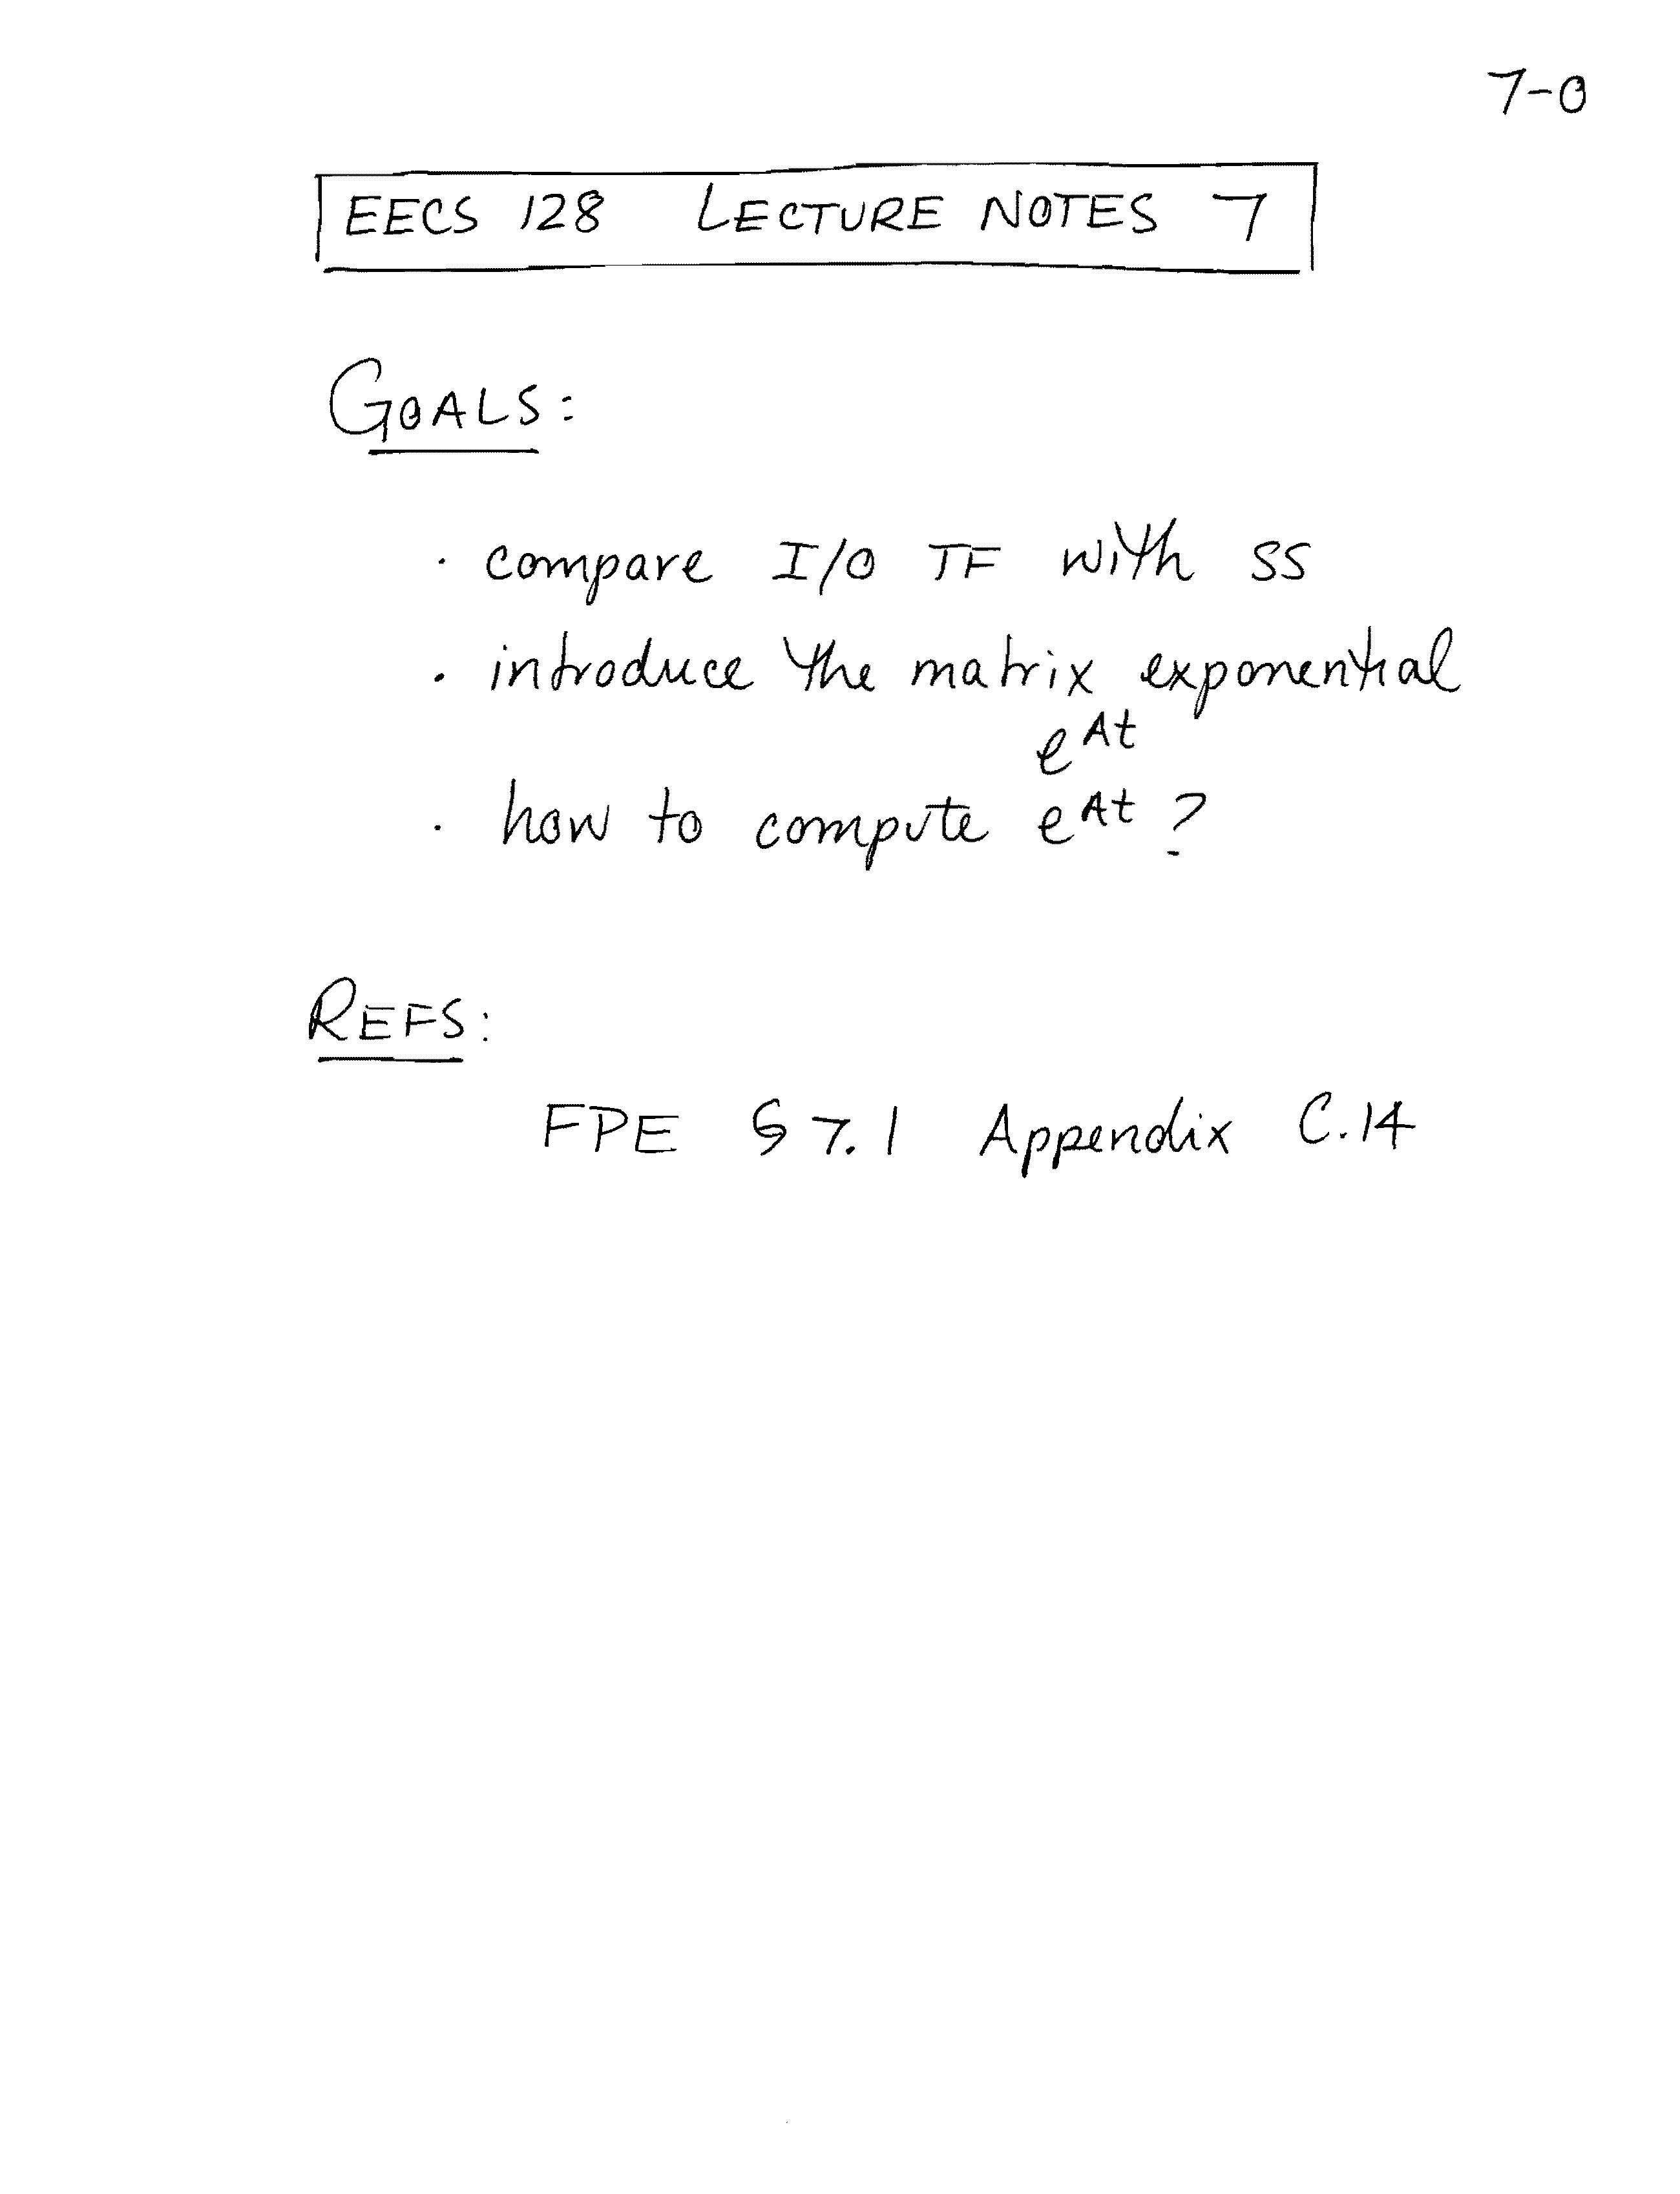 7-0
EECS 128 LECTURE NOTES 7
GOALS:
· compare I/O TF with SS
· introduce the matrix exponential
e^At
· how to compute e^At ?
REFS:
FPE § 7.1 Appendix C.14